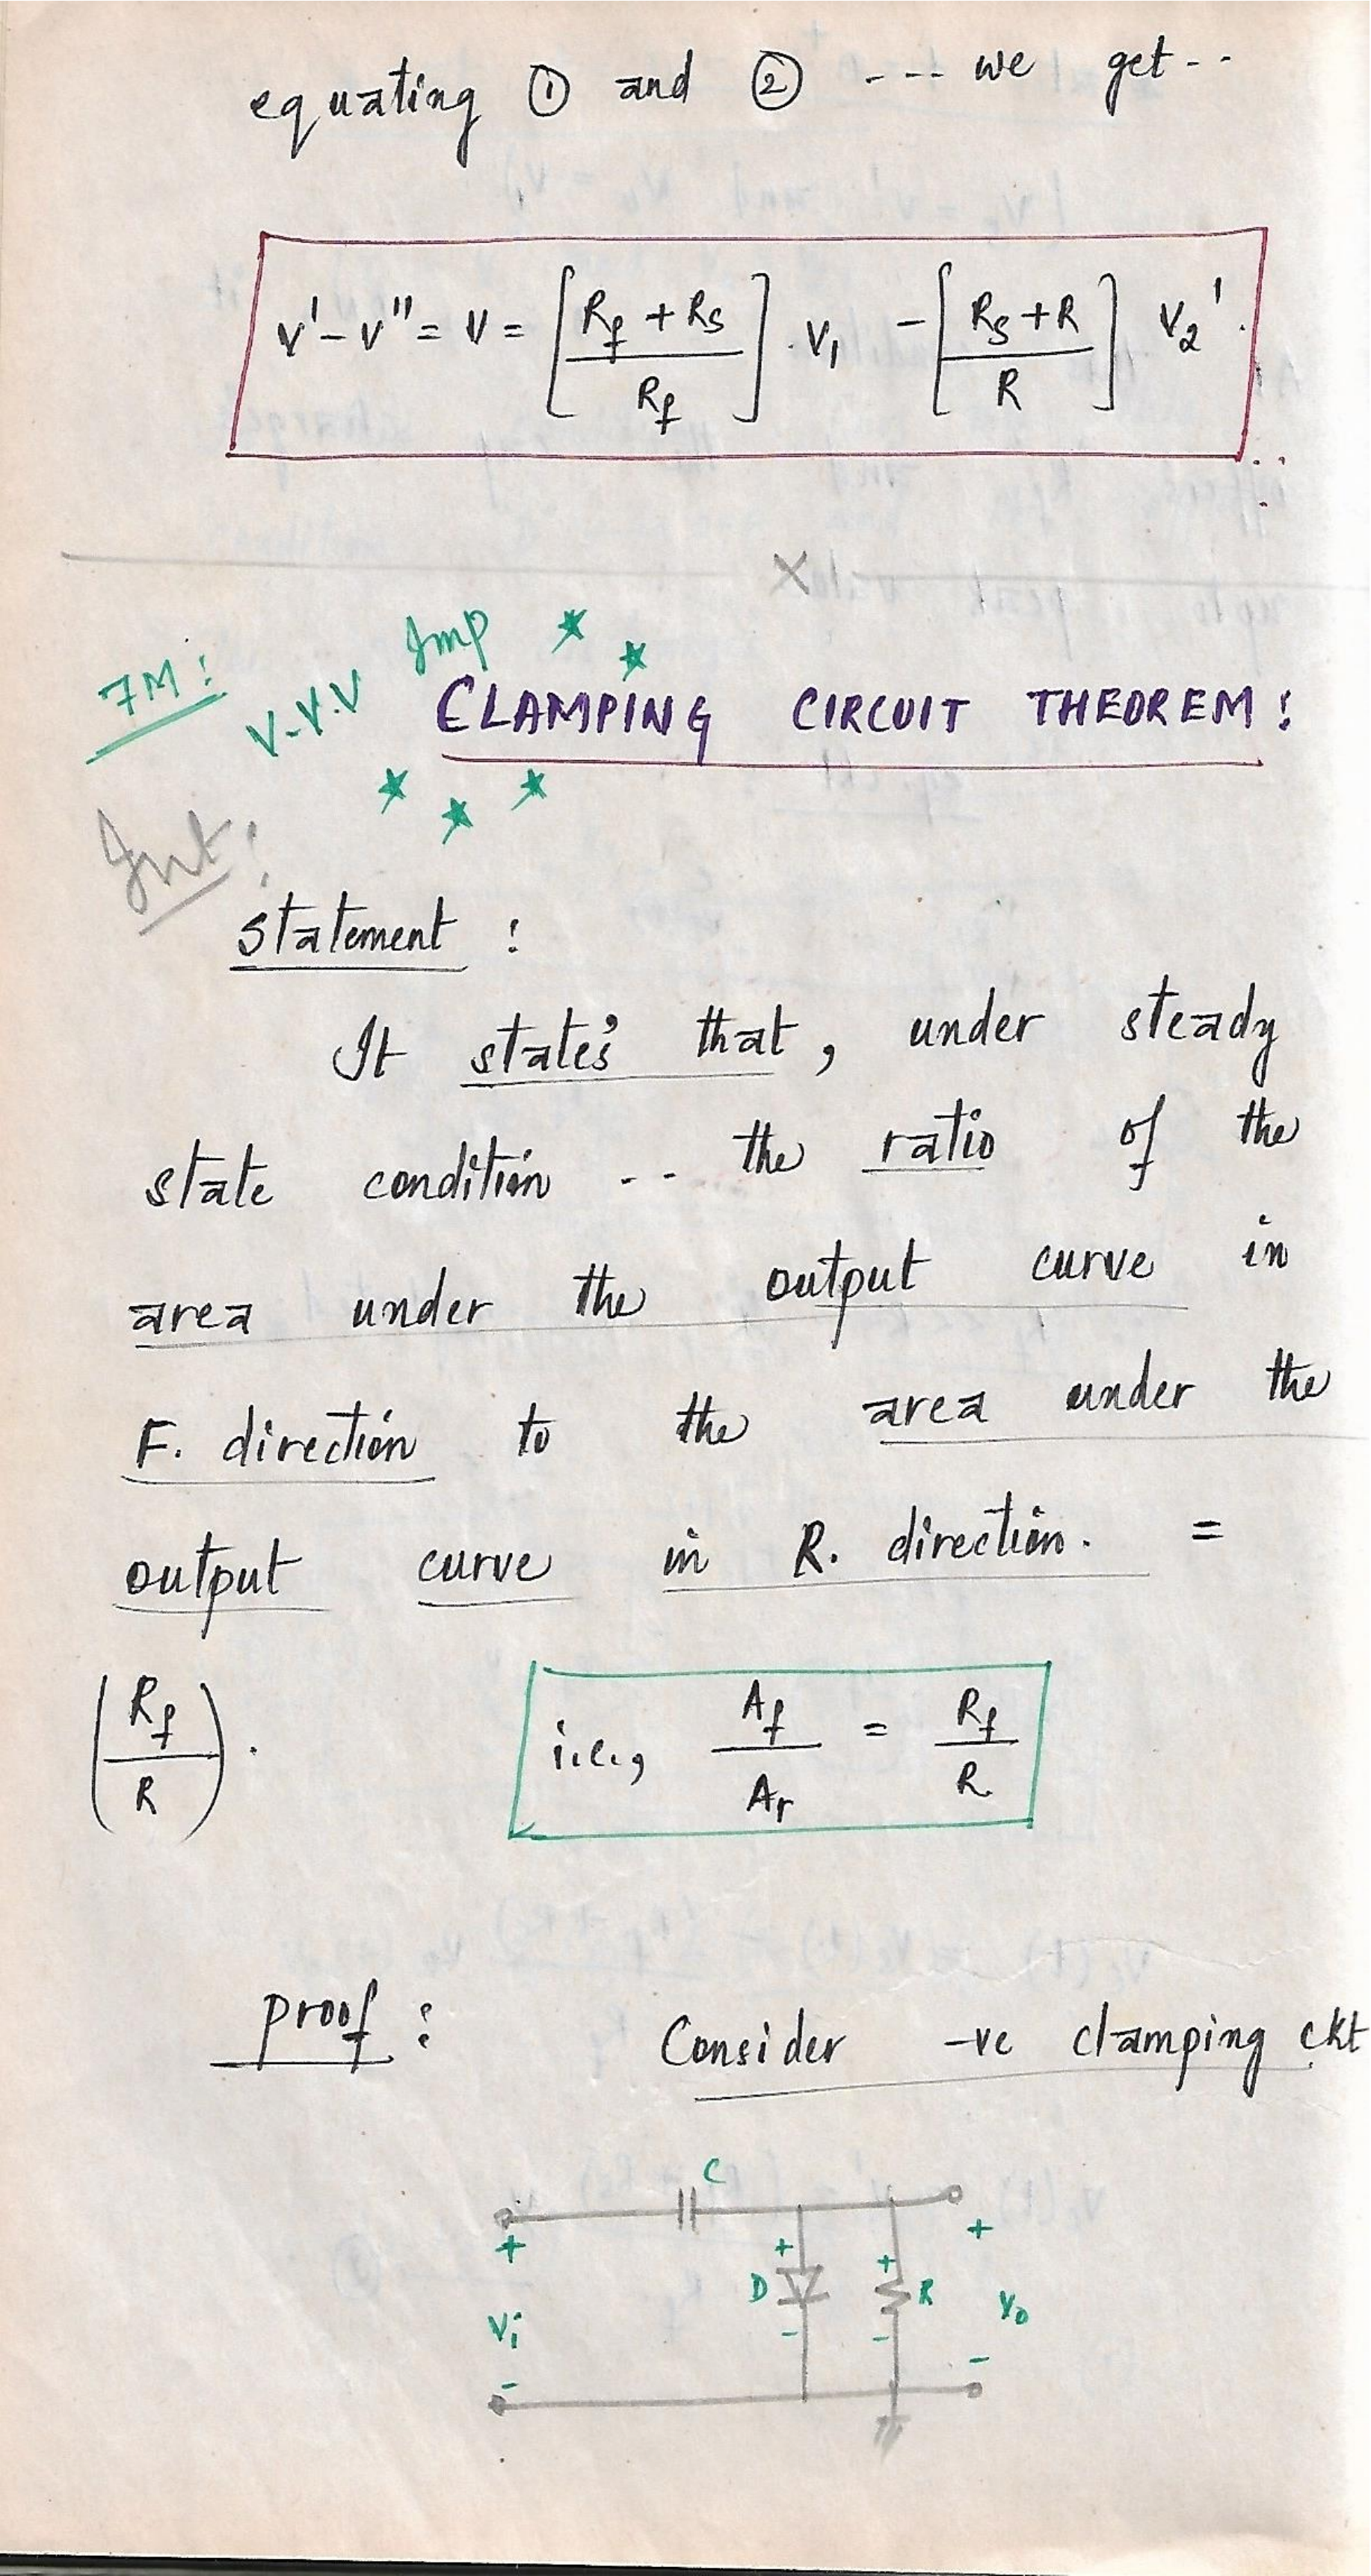 equating ① and ② ---- we get--
v'-v''= v = [ (Rf + Rs) / Rf ] . V1 - [ (Rs + R) / R ] V2'.
X
7M:
V.V.V Imp
CLAMPING CIRCUIT THEOREM:
Int:
statement :
It state's that, under steady
state condition -- the ratio of the
area under the output curve in
F. direction to the area under the
output curve in R. direction. =
(Rf / R).
i.e., Af / Ar = Rf / R
proof : Consider -ve clamping ckt
C
+ + + +
D R
Vi V0
- - - -